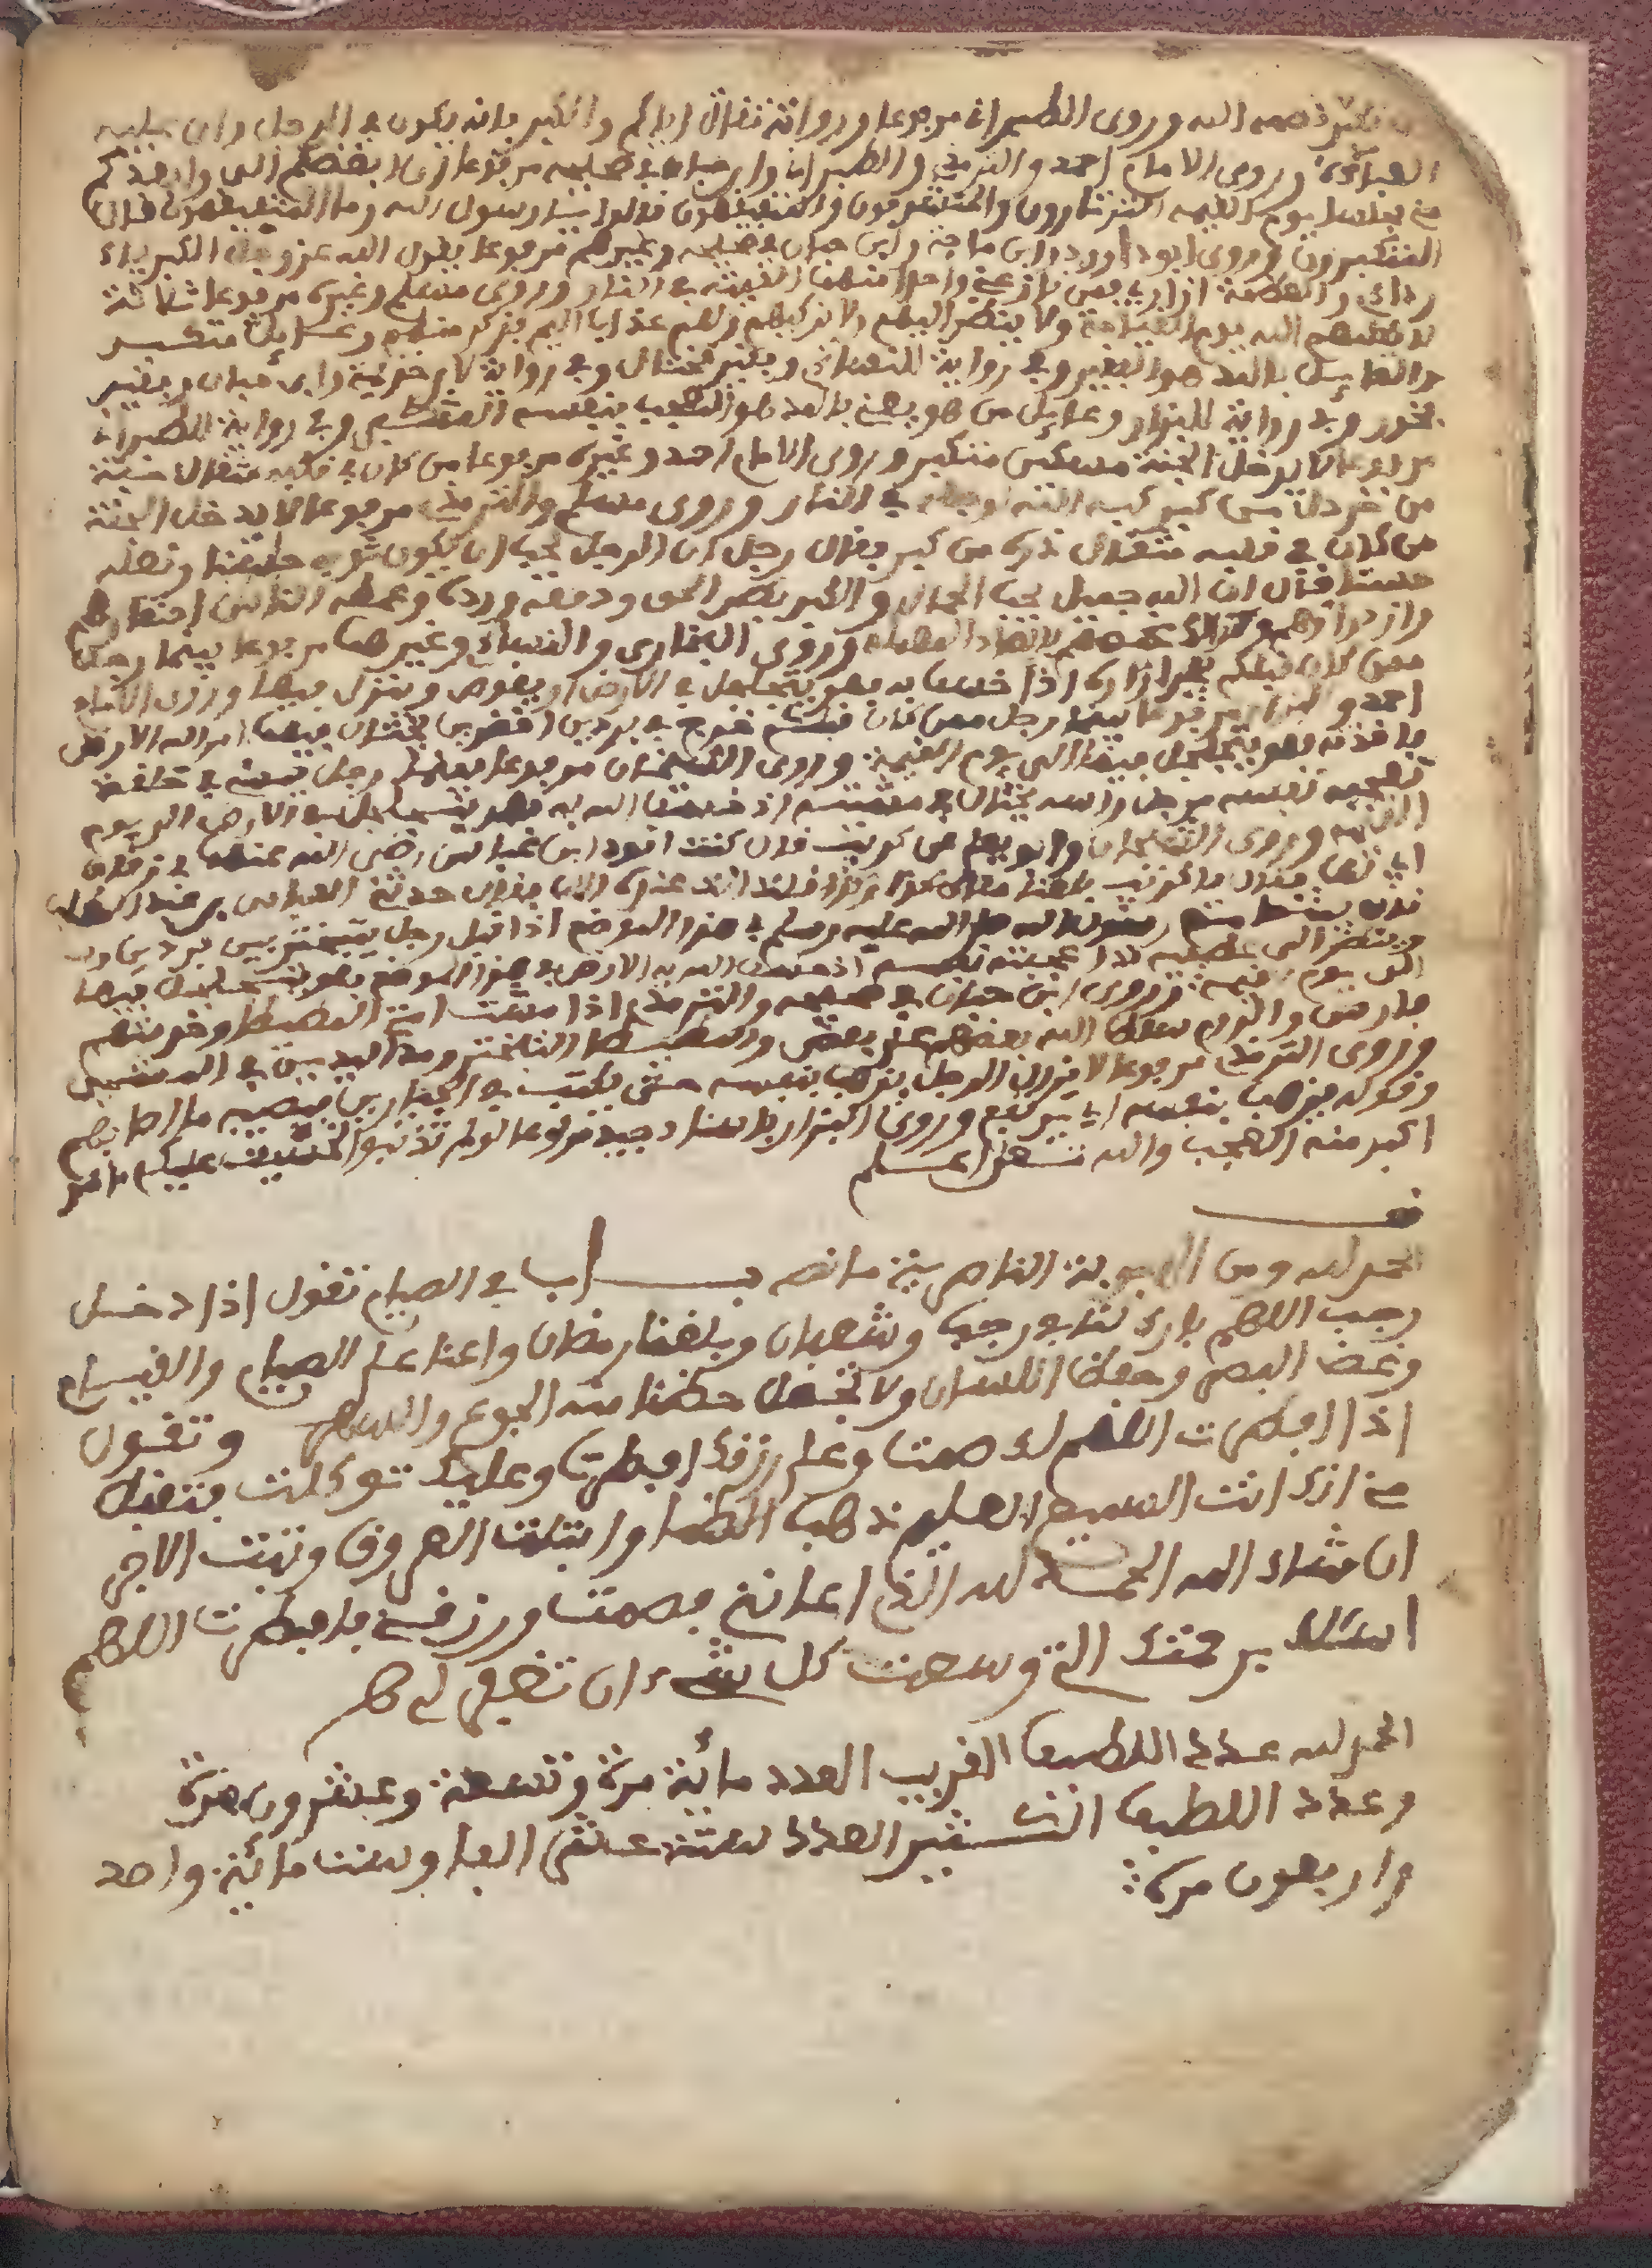 تكبر قصمه الله وروى الطبراني مرفوعا ورواته ثقات اياكم والكبر فانه يكون في الرجل وان عليه
العباءة وروى الامام احمد والترمذي والطبراني وابن حبان في صحيحه مرفوعا ان ابغضكم الى وابعدكم
مني مجلسا يوم القيمة الثرثارون والمتشدقون والمتفيهقون قالوا يا رسول الله وما المتفيهقون قال
المتكبرون وروى ابو داوود وابن ماجة وابن حبان في صحيحه وغيرهم مرفوعا يقول الله عز وجل الكبرياء
ردائي والعظمة ازاري فمن نازعني واحدا منهما القيته في النار وروى مسلم وغيره مرفوعا ثلاثة
لا يكلمهم الله يوم القيامة ولا ينظر اليهم ولا يزكيهم ولهم عذاب اليم فذكر منهم وعائل متكبر
والعائل بالمد هو الفقير وفي رواية للنساءي وفقير مختال وفي رواية لابن خزيمة وابن حبان وفقير
فخور وفي رواية للبزار وعائل مزهو يعني بالمد هو المعجب بنفسه المتكبر وفي رواية للطبراني
مرفوعا لا يدخل الجنة مسكين متكبر وروى الامام احمد وغيره مرفوعا من كان في قلبه مثقال حبة
من خردل من كبر كبه الله لوجهه في النار وروى مسلم والترمذي مرفوعا لا يدخل الجنة
من كان في قلبه مثقال ذرة من كبر فقال رجل ان الرجل يحب ان يكون ثوبه حسنا ونعله
حسنا فقال ان الله جميل يحب الجمال والكبر بطر الحق ودفعه ورده وغمط الناس احتقارهم
وازدراؤهم وكذلك غمصهم بالصاد المهملة وروى البخاري والنساءي وغيرهما مرفوعا بينما رجل
ممن كان قبلكم يجر ازاره اذا خسف به فهو يتجلجل في الارض اي يغوص وينزل فيها وروى الامام
احمد والبزار مرفوعا بينما رجل ممن كان قبلكم خرج في بردين اخضرين يختال فيهما امر الله الارض
فاخذته فهو يتجلجل فيها الى يوم القيمة وروى الشيخان مرفوعا بينما رجل يمشي في حلة
تعجبه نفسه مرجل راسه يختال في مشيته اذ خسف الله به فهو يتجلجل في الارض الى يوم
القيامة وروى الشيخان وابو يعلى عن كريب قال كنت اقود ابن عباس رضي الله عنهما في زقاق
ابي لهب فقال يا كريب بلغنا مكان كذا وكذا قلت انت عنده الان فقال حدثني العباس بن عبد المطلب
قال بينما انا مع رسول الله صلى الله عليه وسلم في هذا الموضع اذ اقبل رجل يتبختر بين بردين
وينظر الى عطفيه قد اعجبته نفسه اذ خسف الله به الارض في هذا الموضع فهو يتجلجل فيها
الى يوم القيمة وروى ابن حبان في صحيحه والترمذي اذا مشت امتي المطيطا وخدمتهم
فارس والروم سلط الله بعضهم على بعض والمطيطا التبختر ومد اليدين في المشي
وروى الترمذي مرفوعا لا يزال الرجل يذهب بنفسه حتى يكتب في الجبارين فيصيبه ما اصابهم
وقوله يذهب بنفسه اي يترفع وروى البزار باسناد جيد مرفوعا لو لم تذنبوا لخشيت عليكم ما هو
اكبر منه العجب والله تعالى اعلم
الحمد لله ومن الاجوبة الناصرية ما نصه باب في الصيام تقول اذا دخل
رجب اللهم بارك لنا في رجب وشعبان وبلغنا رمضان واعنا على الصيام والقيام
وغض البصر وحفظ اللسان ولا تجعل حظنا منه الجوع والسهر وتقول
اذا افطرت اللهم لك صمت وعلى رزقك افطرت وعليك توكلت فتقبل
مني انك انت السميع العليم ذهب الظما وابتلت العروق وثبت الاجر
ان شاء الله الحمد لله الذي اعانني فصمت ورزقني فافطرت اللهم
اسئلك برحمتك التي وسعت كل شيء ان تغفر لي
الحمد لله عدد اللطيف القريب العدد مائة مرة وتسعة وعشرون مرة
وعدد اللطيف الكثير العدد ستة عشر الفا وست مائة وواحد
واربعون مرة